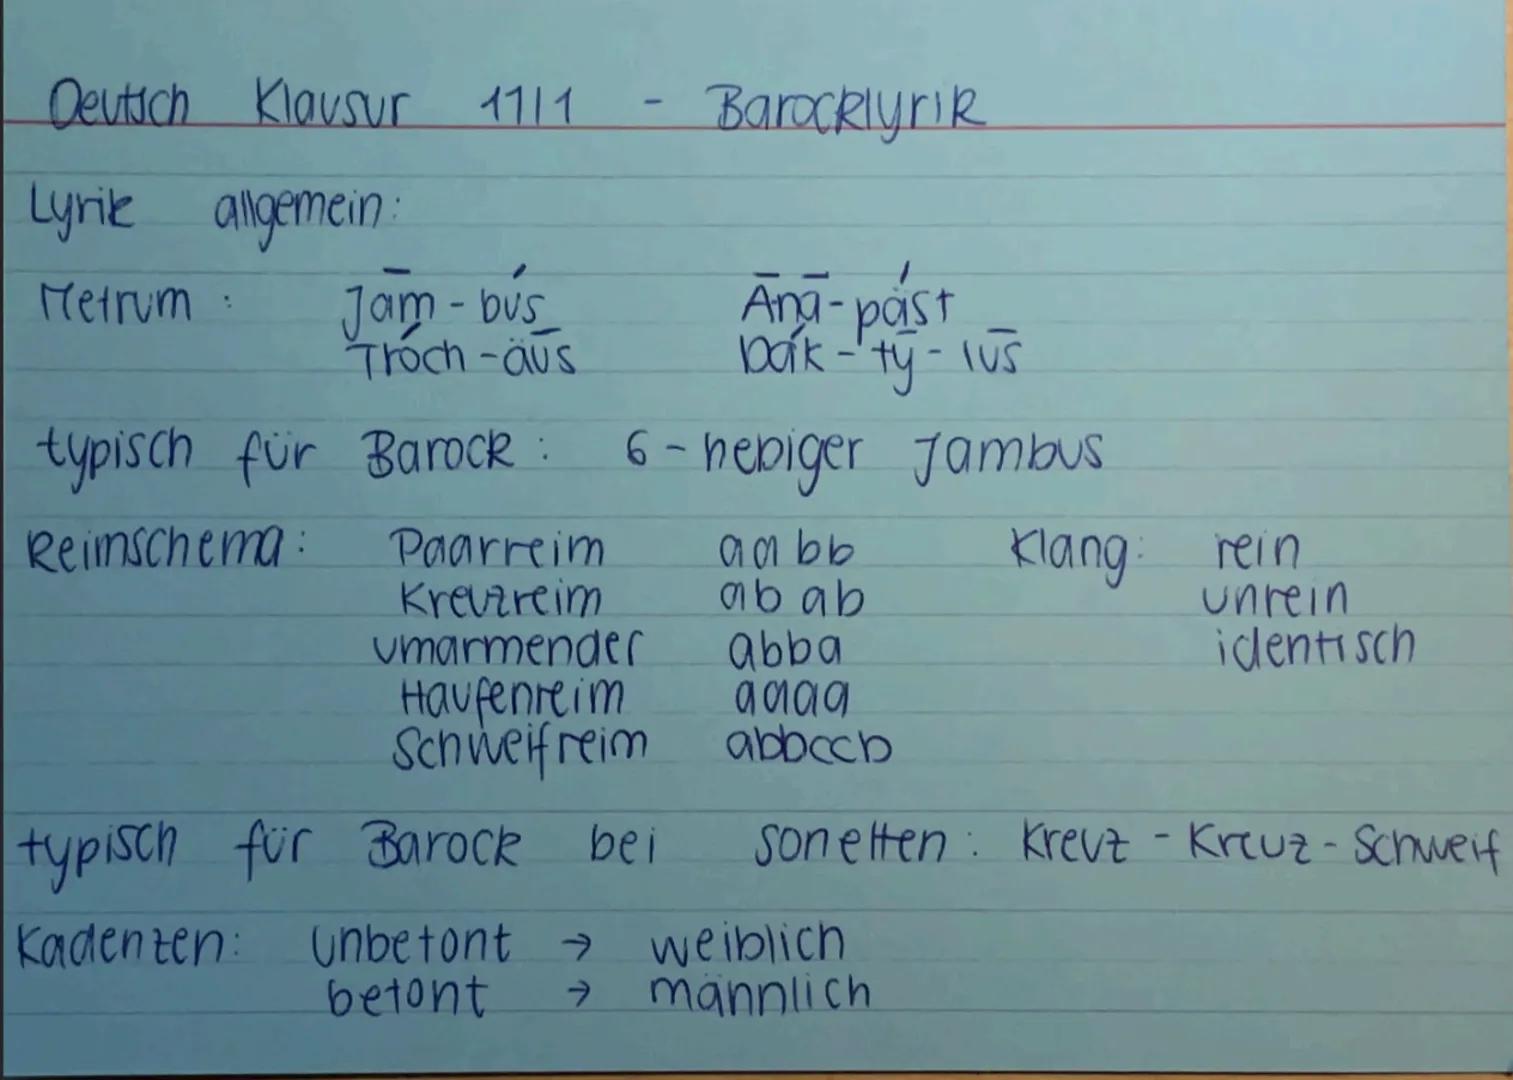 Deutsch Klausur 11/1 - Barocklyrik
Lyrik allgemein:
Metrum: Jam-bus Ana-päst
Troch-äus Dak-ty-lus
typisch für Barock: 6-hebiger Jambus
Reimschema: Paarreim aabb Klang: rein
Kreuzreim abab unrein
umarmender abba identisch
Haufenreim aaaa
Schweifreim abbccb
typisch für Barock bei Sonetten: Kreuz-Kreuz-Schweif
Kadenzen: unbetont → weiblich
betont → männlich